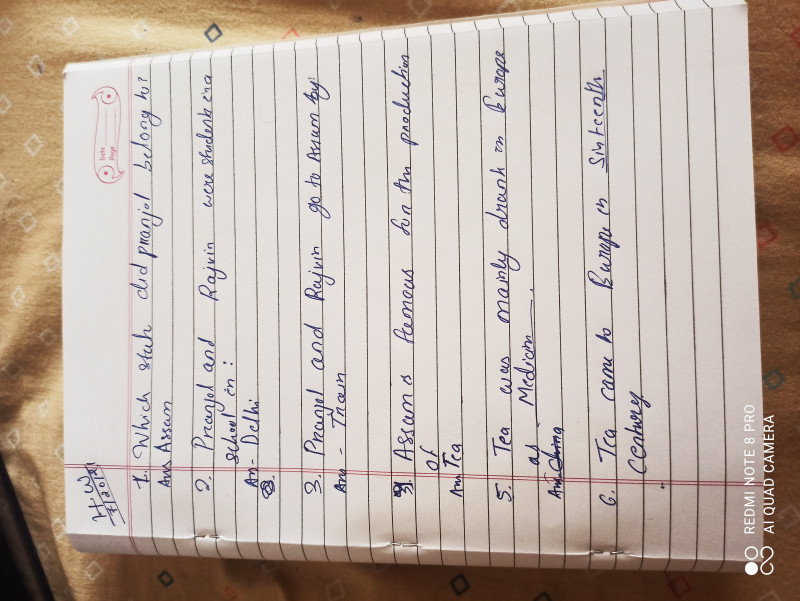 H.W
Date
Page
1. Which stat did pranjol belong to?
Ans Assam
2. Pranjol and Rajvin were students in a
school in :
An- Delhi
3. Pranjol and Rajvin go to Assam by
An - Train
Assam is famous for the production
of
Ans Tea
5. Tea was mainly drank in Europe
as Medicin.
Ans China
6. Tea came to Europe in Sinteenth
century
REDMI NOTE 8 PRO
AI QUAD CAMERA